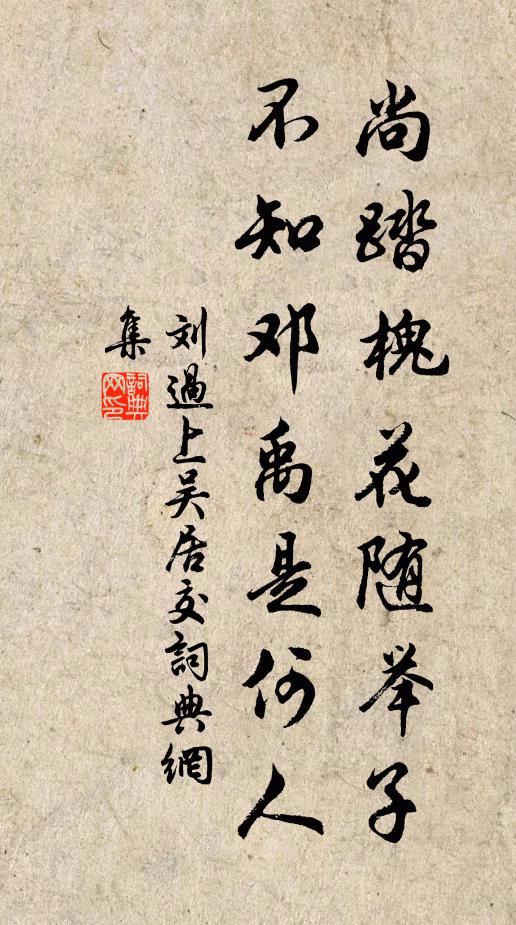 尚踏槐花随举子
不知邓禹是何人
刘過上吴居父詞典網
集
詞典
网印